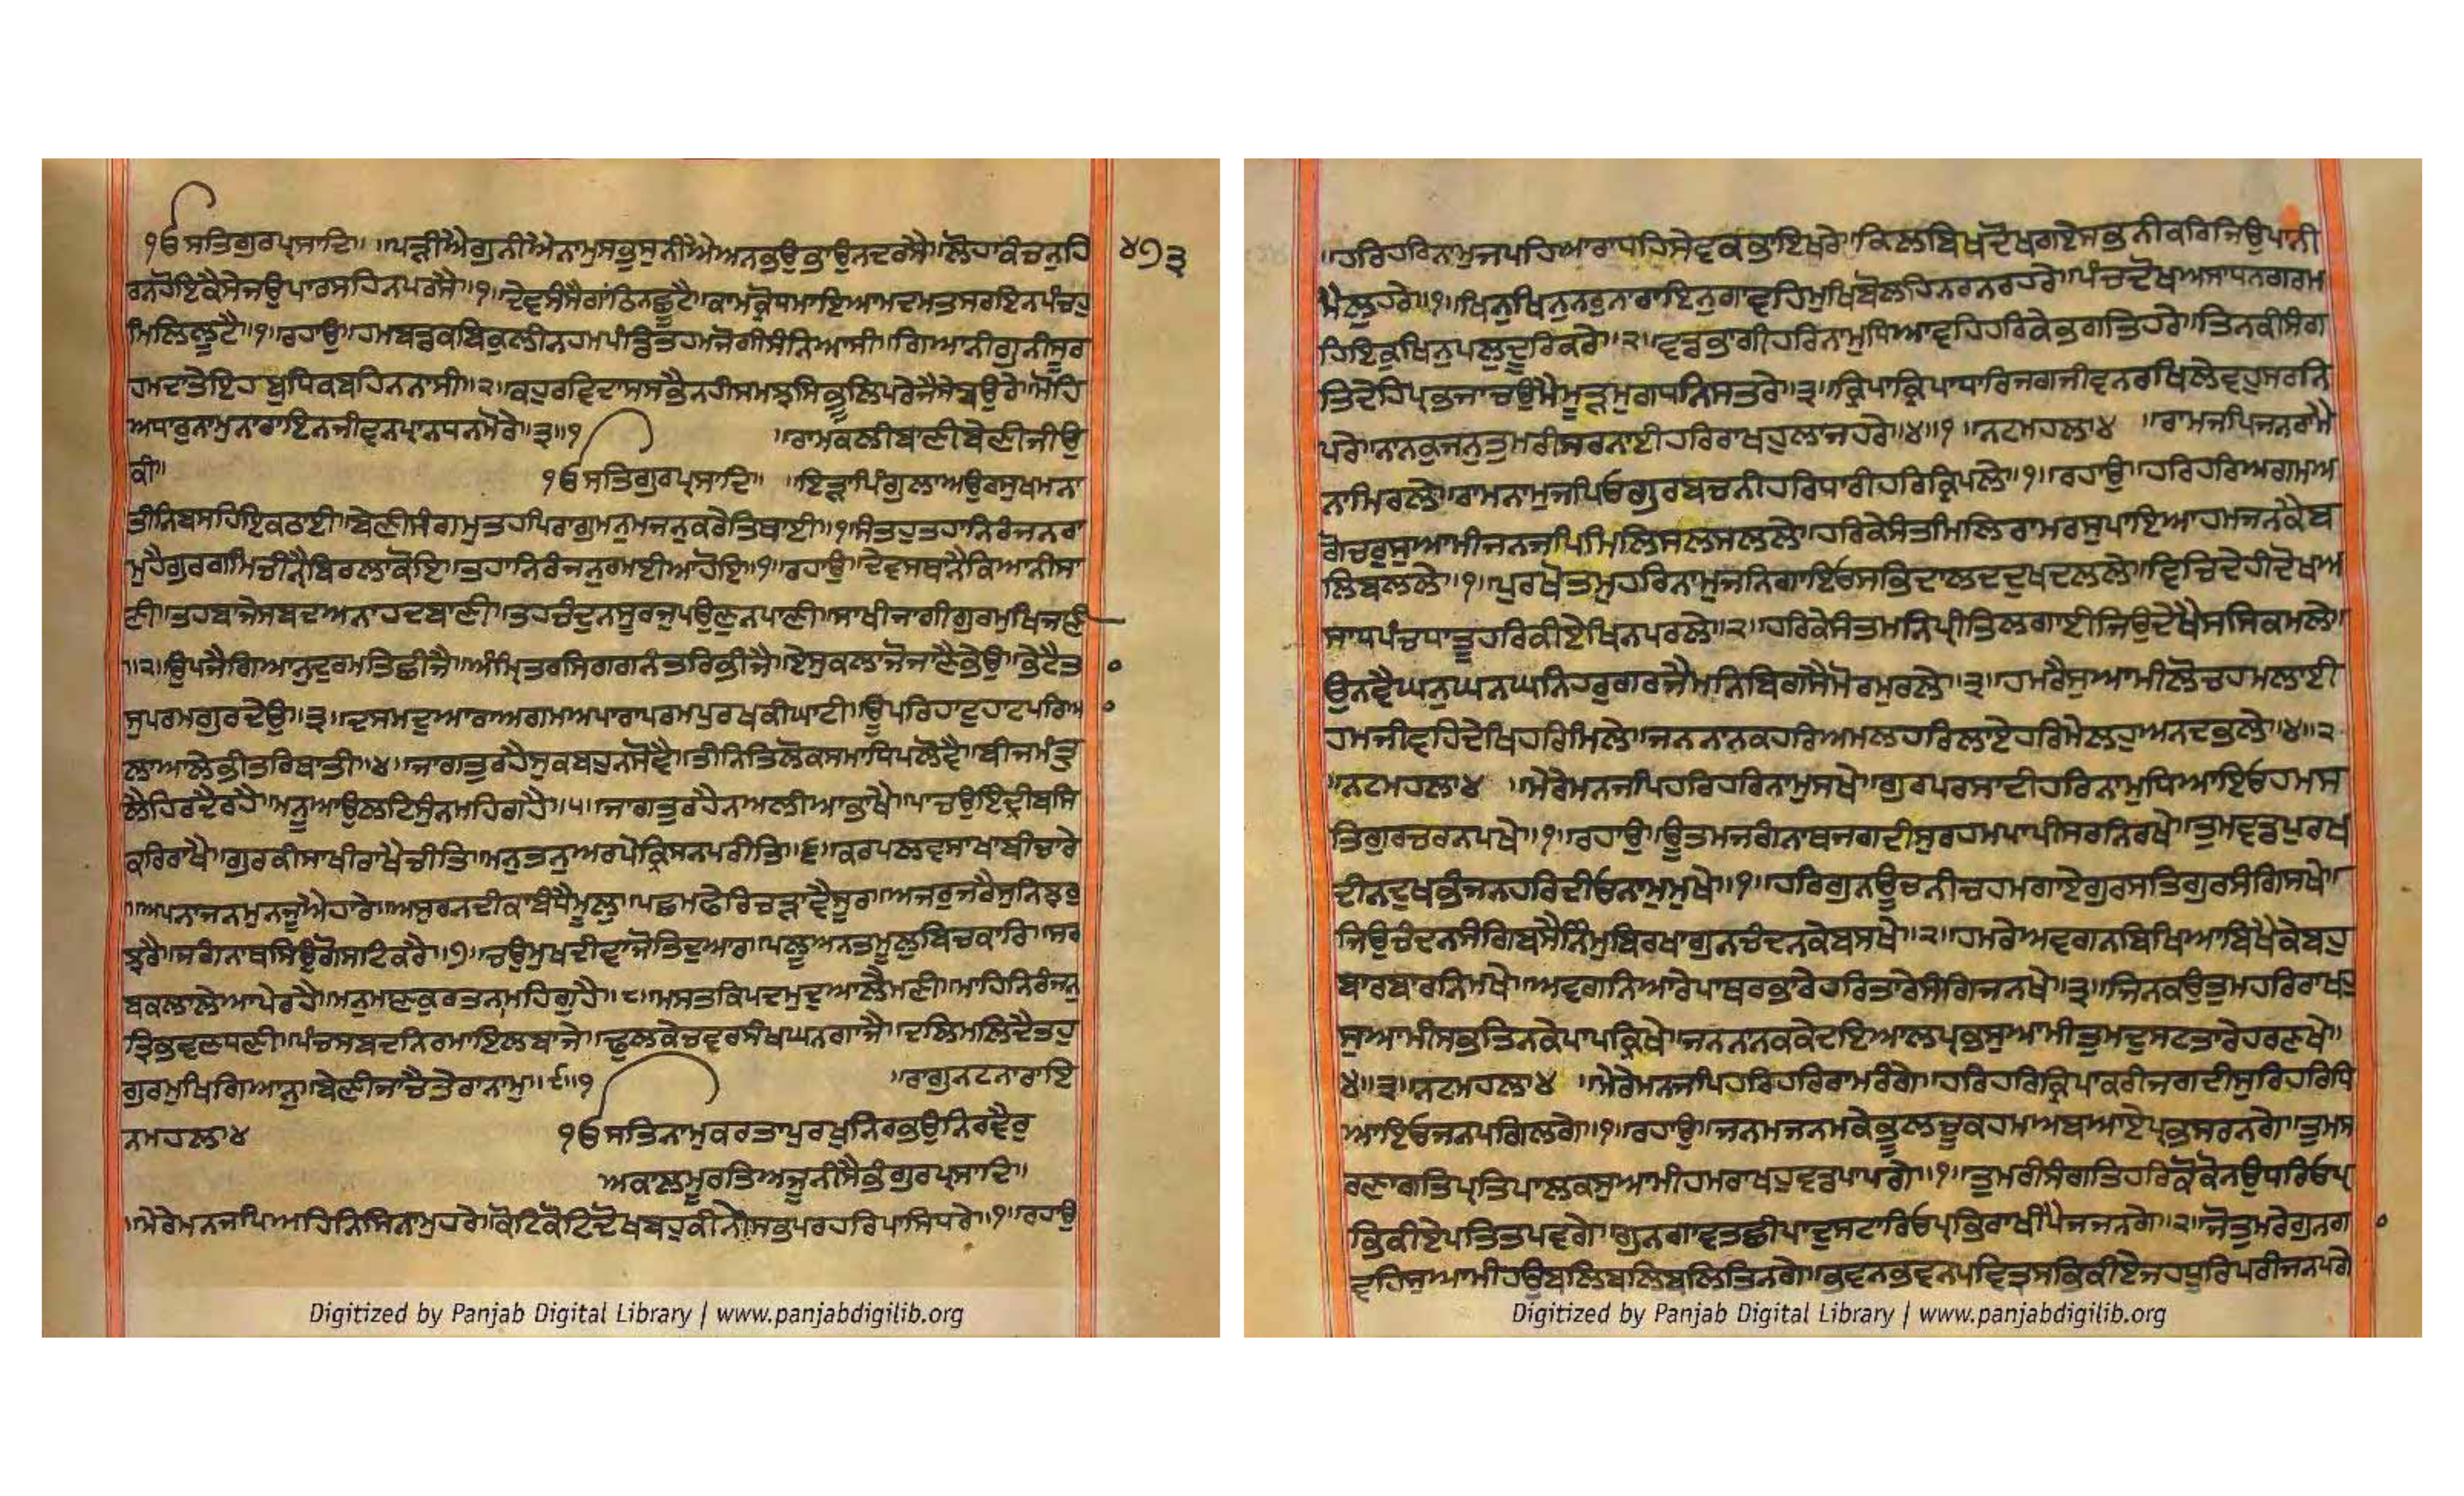 ੴਸਤਿਗੁਰਪ੍ਰਸਾਦਿ॥ ॥ਪੜੀਐਗੁਨੀਐਨਾਮੁਸਭੁਸੁਨੀਐਅਨਭਉਭਾਉਨਦਰਸੈ॥ਲੋਹਾਕੰਚਨੁਹਿ ੪੭੩
ਰਨਹੋਇਕੈਸੇਜਉਪਾਰਸਹਿਨਪਰਸੈ॥੧॥ਦੇਵਸੰਸੈਗਾਂਠਿਨਛੂਟੈ॥ਕਾਮਕ੍ਰੋਧਮਾਇਆਮਦਮਤਸਰਇਨਪੰਚਹੁ
ਮਿਲਿਲੂਟੈ॥੧॥ਰਹਾਉ॥ਹਮਬਡਕਬਿਕੁਲੀਨਹਮਪੰਡਿਤਹਮਜੋਗੀਸੰਨਿਆਸੀ॥ਗਿਆਨੀਗੁਨੀਸੂਰ
ਹਮਦਾਤੇਇਹਬੁਧਿਕਬਹਿਨਨਾਸੀ॥੨॥ਕਹੁਰਵਿਦਾਸਸਭੈਨਹੀਸਮਝਸਿਭੂਲਿਪਰੇਜੈਸੇਬਉਰੇ॥ਮੋਹਿ
ਅਧਾਰੁਨਾਮੁਨਾਰਾਇਨਜੀਵਨਪ੍ਰਾਨਧਨਮੋਰੇ॥੩॥੧ ॥ਰਾਮਕਲੀਬਾਣੀਬੇਣੀਜੀਉ
ਕੀ॥ ੴਸਤਿਗੁਰਪ੍ਰਸਾਦਿ॥ ॥ਇੜਾਪਿੰਗੁਲਾਅਉਰਸੁਖਮਨਾ
ਤੀਨਿਬਸਹਿਇਕਠਾਈ॥ਬੇਣੀਸੰਗਮੁਤਹਪਿਰਾਗੁਮਨੁਮਜਨੁਕਰੇਤਿਥਾਈ॥੧॥ਸੰਤਹੁਤਹਾਨਿਰੰਜਨਰਾ
ਮੁਹੈਗੁਰਗਮਿਚੀਨੈਬਿਰਲਾਕੋਇ॥ਤਹਾਨਿਰੰਜਨੁਰਮਈਆਹੋਇ॥੧॥ਰਹਾਉ॥ਦੇਵਸਥਾਨੈਕਿਆਨੀਸਾ
ਣੀ॥ਤਹਬਾਜੇਸਬਦਅਨਾਹਦਬਾਣੀ॥ਤਹਚੰਦੁਨਸੂਰਜੁਪਉਣੁਨਪਾਣੀ॥ਸਾਖੀਜਾਗੀਗੁਰਮੁਖਿਜਾਣੀ
॥੨॥ਉਪਜੈਗਿਆਨੁਦੁਰਮਤਿਛੀਜੈ॥ਅੰਮ੍ਰਿਤਰਸਿਗਗਨੰਤਰਿਭੀਜੈ॥ਏਸੁਕਲਾਜੋਜਾਣੈਭੇਉ॥ਭੇਟੈਤਾ
ਸੁਪਰਮਗੁਰਦੇਉ॥੩॥ਦਸਮਦੁਆਰਾਅਗਮਅਪਾਰਾਪਰਮਪੁਰਖਕੀਘਾਟੀ॥ਊਪਰਿਹਾਟੁਹਾਟਪਰਿਆ
ਲਾਆਲੇਭੀਤਰਿਥਾਤੀ॥੪॥ਜਾਗਤੁਰਹੈਸੁਕਬਹੁਨਸੋਵੈ॥ਤੀਨਿਤਿਲੋਕਸਮਾਧਿਪਲੋਵੈ॥ਬੀਜਮੰਤ੍ਰੁ
ਲੈਹਿਰਦੈਰਹੈ॥ਮਨੂਆਉਲਟਿਸੁੰਨਮਹਿਗਹੈ॥੫॥ਜਾਗਤੁਰਹੈਨਅਲੀਆਭਾਖੈ॥ਪਾਚਉਇੰਦ੍ਰੀਬਸਿ
ਕਰਿਰਾਖੈ॥ਗੁਰਕੀਸਾਖੀਰਾਖੈਚੀਤਿ॥ਮਨੁਤਨੁਅਰਪੇਕ੍ਰਿਸਨਪਰੀਤਿ॥੬॥ਕਰਪਲਵਸਾਖਾਬੀਚਾਰੇ
॥ਅਪਨਾਜਨਮੁਨਜੂਐਹਾਰੇ॥ਅਸੁਰਨਦੀਕਾਬੰਧੈਮੂਲੁ॥ਪਛਮਫੇਰਿਚੜਾਵੈਸੂਰੁ॥ਅਜਰੁਜਰੈਸੁਨਿਝਰੁ
ਝਰੈ॥ਜਗੰਨਾਥਸਿਉਗੋਸਟਿਕਰੈ॥੭॥ਚਉਮੁਖਦੀਵਾਜੋਤਿਦੁਆਰ॥ਪਲੂਅਨਤਮੂਲੁਬਿਚਕਾਰਿ॥ਸਰ
ਬਕਲਾਲੇਆਪੇਰਹੈ॥ਮਨੁਮਾਣਕੁਰਤਨਾਮਹਿਗੁਹੈ॥੮॥ਮਸਤਕਿਪਦਮੁਦੁਆਲੈਮਣੀ॥ਮਾਹਿਨਿਰੰਜਨੁ
ਤ੍ਰਿਭਵਣਧਣੀ॥ਪੰਚਸਬਦਨਿਰਮਾਇਲਬਾਜੇ॥ਢੁਲਕੇਚਵਰਸੰਖਘਨਗਾਜੈ॥ਦਲਿਮਲਿਦੈਤਹੁ
ਗੁਰਮੁਖਿਗਿਆਨੁ॥ਬੇਣੀਜਾਚੈਤੇਰਾਨਾਮੁ॥੯॥੧ ॥ਰਾਗੁਨਟਨਾਰਾਇ
ਨਮਹਲਾ੪ ੴਸਤਿਨਾਮੁਕਰਤਾਪੁਰਖੁਨਿਰਭਉਨਿਰਵੈਰੁ
ਅਕਾਲਮੂਰਤਿਅਜੂਨੀਸੈਭੰਗੁਰਪ੍ਰਸਾਦਿ॥
॥ਮੇਰੇਮਨਜਪਿਅਹਿਨਿਸਿਨਾਮੁਹਰੇ॥ਕੋਟਿਕੋਟਿਦੋਖਬਹੁਕੀਨੇਸਭਪਰਹਰਿਪਾਸਿਧਰੇ॥੧॥ਰਹਾਉ
Digitized by Panjab Digital Library | www.panjabdigilib.org
॥ਹਰਿਹਰਿਨਾਮੁਜਪਹਿਆਰਾਧਹਿਸੇਵਕਭਾਇਖਰੇ॥ਕਿਲਬਿਖਦੋਖਗਏਸਭਨੀਕਰਿਜਿਉਪਾਨੀ
ਮੈਲੁਹਰੇ॥੧॥ਖਿਨੁਖਿਨੁਨਰੁਨਾਰਾਇਨੁਗਾਵਹਿਮੁਖਿਬੋਲਹਿਨਰਨਰਹਰੇ॥ਪੰਚਦੋਖਅਸਾਧਨਗਰਮ
ਹਿਇਕੁਖਿਨੁਪਲੁਦੂਰਿਕਰੇ॥੨॥ਵਡਭਾਗੀਹਰਿਨਾਮੁਧਿਆਵਹਿਹਰਿਕੇਭਗਤਿਹਰੇ॥ਤਿਨਕੀਸੰਗ
ਤਿਦੇਹਿਪ੍ਰਭਜਾਚਉਮੈਮੂੜਮੁਗਧਨਿਸਤਰੇ॥੩॥ਕ੍ਰਿਪਾਕ੍ਰਿਪਾਧਾਰਿਜਗਜੀਵਨਰਖਿਲੇਵਹੁਸਰਨਿ
ਪਰੇ॥ਨਾਨਕੁਜਨੁਤੁਮਰੀਸਰਨਾਈਹਰਿਰਾਖਹੁਲਾਜਹਰੇ॥੪॥੧ ॥ਨਟਮਹਲਾ੪ ॥ਰਾਮਜਪਿਜਨਰਾਮੈ
ਨਾਮਿਰਲੇ॥ਰਾਮਨਾਮੁਜਪਿਓਗੁਰਬਚਨੀਹਰਿਧਾਰੀਹਰਿਕ੍ਰਿਪਲੇ॥੧॥ਰਹਾਉ॥ਹਰਿਹਰਿਅਗਮਅ
ਗੋਚਰੁਸੁਆਮੀਜਨਜਪਿਮਿਲਿਸਲਲਸਲਲੇ॥ਹਰਿਕੇਸੰਤਮਿਲਿਰਾਮਰਸੁਪਾਇਆਹਮਜਨਕੈਬ
ਲਿਬਲਲੇ॥੧॥ਪੁਰਖੋਤਮੁਹਰਿਨਾਮੁਜਨਿਗਾਇਓਸਭਿਦਾਲਦਦੁਖਦਲਲੇ॥ਵਿਚਿਦੇਹੀਦੋਖਅ
ਸਾਧਪੰਚਧਾਤੂਹਰਿਕੀਏਖਿਨਪਰਲੇ॥੨॥ਹਰਿਕੇਸੰਤਮਨਿਪ੍ਰੀਤਿਲਗਾਈਜਿਉਦੇਖੈਸਸਿਕਮਲੇ॥
ਉਨਵੈਘਨੁਘਨਘਨਿਹਰੁਗਰਜੈਮਨਿਬਿਗਸੈਮੋਰਮੁਰਲੇ॥੩॥ਹਮਰੈਸੁਆਮੀਲੋਚਹਮਲਾਈ
ਹਮਜੀਵਹਿਦੇਖਿਹਰਿਮਿਲੇ॥ਜਨਨਾਨਕਹਰਿਅਮਲਹਰਿਲਾਏਹਰਿਮੇਲਹੁਅਨਦਭਲੇ॥੪॥੨
॥ਨਟਮਹਲਾ੪ ॥ਮੇਰੇਮਨਜਪਿਹਰਿਹਰਿਨਾਮੁਸਖੇ॥ਗੁਰਪਰਸਾਦੀਹਰਿਨਾਮੁਧਿਆਇਓਹਮਸ
ਤਿਗੁਰਚਰਨਪਖੇ॥੧॥ਰਹਾਉ॥ਊਤਮਜਗੰਨਾਥਜਗਦੀਸੁਰਹਮਪਾਪੀਸਰਨਿਰਖੇ॥ਤੁਮਵਡਪੁਰਖ
ਦੀਨਦੁਖਭੰਜਨਹਰਿਦੀਓਨਾਮੁਮੁਖੇ॥੧॥ਹਰਿਗੁਨਊਚਨੀਚਹਮਗਾਏਗੁਰਸਤਿਗੁਰਸੰਗਿਸਖੇ॥
ਜਿਉਚੰਦਨਸੰਗਿਬਸੈਨਿੰਮੁਬਿਰਖਾਗੁਨਚੰਦਨਕੇਬਸਖੇ॥੨॥ਹਮਰੇਅਵਗਨਬਿਖਿਆਬਿਖੈਕੇਬਹੁ
ਬਾਰਬਾਰਨਿਮਖੇ॥ਅਵਗਨਿਆਰੇਪਾਥਰਭਾਰੇਹਰਿਤਾਰੇਸੰਗਿਜਨਖੇ॥੩॥ਜਿਨਕਉਤੁਮਹਰਿਰਾਖਹੁ
ਸੁਆਮੀਸਭਤਿਨਕੇਪਾਪਕ੍ਰਿਖੇ॥ਜਨਨਾਨਕਕੇਦਇਆਲਪ੍ਰਭਸੁਆਮੀਤੁਮਦੁਸਟਤਾਰੇਹਰਣਖੇ॥
੪॥੩॥ਨਟਮਹਲਾ੪ ॥ਮੇਰੇਮਨਜਪਿਹਰਿਹਰਿਰਾਮਰੰਗੇ॥ਹਰਿਹਰਿਕ੍ਰਿਪਾਕਰੀਜਗਦੀਸੁਰਿਹਰਿਧਿ
ਆਇਓਜਨਪਗਿਲਗੇ॥੧॥ਰਹਾਉ॥ਜਨਮਜਨਮਕੇਭੂਲਚੂਕਹਮਅਬਆਏਪ੍ਰਭਸਰਨਗੇ॥ਤੁਮਸ
ਰਣਾਗਤਿਪ੍ਰਤਿਪਾਲਕਸੁਆਮੀਹਮਰਾਖਹੁਵਡਪਾਪਗੇ॥੧॥ਤੁਮਰੀਸੰਗਤਿਹਰਿਕੋਕੋਨਉਧਰਿਓਪ੍ਰ
ਭਿਕੀਏਪਤਿਤਪਵਗੇ॥ਗੁਨਗਾਵਤਛੀਪਾਦੁਸਟਾਰਿਓਪ੍ਰਭਿਰਾਖੀਪੈਜਜਨਗੇ॥੨॥ਜੋਤੁਮਰੇਗੁਨਗਾ
ਵਹਿਸੁਆਮੀਹਉਬਲਿਬਲਿਬਲਿਤਿਨਗੇ॥ਭਵਨਭਵਨਪਵਿਤ੍ਰਸਭਿਕੀਏਜਹਧੂਰਿਪਰੀਜਨਪਗੇ
Digitized by Panjab Digital Library | www.panjabdigilib.org